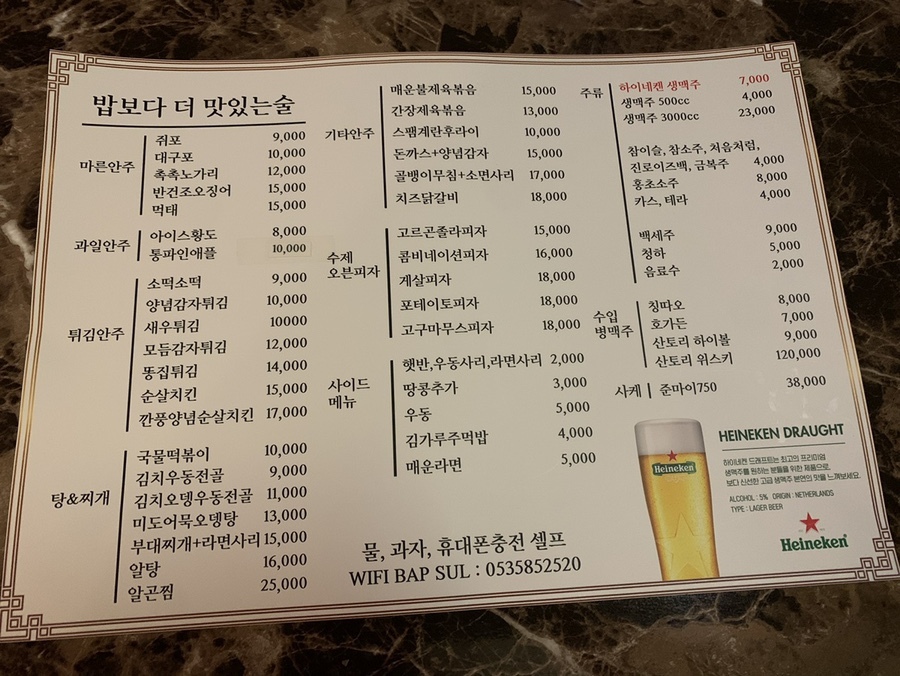 밥보다 더 맛있는술
마른안주
쥐포 9,000
대구포 10,000
촉촉노가리 12,000
반건조오징어 15,000
먹태 15,000
과일안주
아이스황도 8,000
통파인애플 10,000
튀김안주
소떡소떡 9,000
양념감자튀김 10,000
새우튀김 10000
모듬감자튀김 12,000
똥집튀김 14,000
순살치킨 15,000
깐풍양념순살치킨 17,000
탕&찌개
국물떡볶이 10,000
김치우동전골 9,000
김치오뎅우동전골 11,000
미도어묵오뎅탕 13,000
부대찌개+라면사리 15,000
알탕 16,000
알곤찜 25,000
기타안주
매운불제육볶음 15,000
간장제육볶음 13,000
스팸계란후라이 10,000
돈까스+양념감자 15,000
골뱅이무침+소면사리 17,000
치즈닭갈비 18,000
수제
오븐피자
고르곤졸라피자 15,000
콤비네이션피자 16,000
게살피자 18,000
포테이토피자 18,000
고구마무스피자 18,000
사이드
메뉴
햇반,우동사리,라면사리 2,000
땅콩추가 3,000
우동 5,000
김가루주먹밥 4,000
매운라면 5,000
물, 과자, 휴대폰충전 셀프
WIFI BAP SUL : 0535852520
주류
하이네켄 생맥주 7,000
생맥주 500cc 4,000
생맥주 3000cc 23,000
참이슬, 참소주, 처음처럼,
진로이즈백, 금복주 4,000
홍초소주 8,000
카스, 테라 4,000
백세주 9,000
청하 5,000
음료수 2,000
수입
병맥주
칭따오 8,000
호가든 7,000
산토리 하이볼 9,000
산토리 위스키 120,000
사케
준마이750 38,000
Heineken
HEINEKEN DRAUGHT
하이네켄 드래프트는 최고의 프리미엄
생맥주를 원하는 분들을 위한 제품으로,
보다 신선한 고급 생맥주 본연의 맛을 느껴보세요.
ALCOHOL : 5% ORIGIN : NETHERLANDS
TYPE : LAGER BEER
Heineken